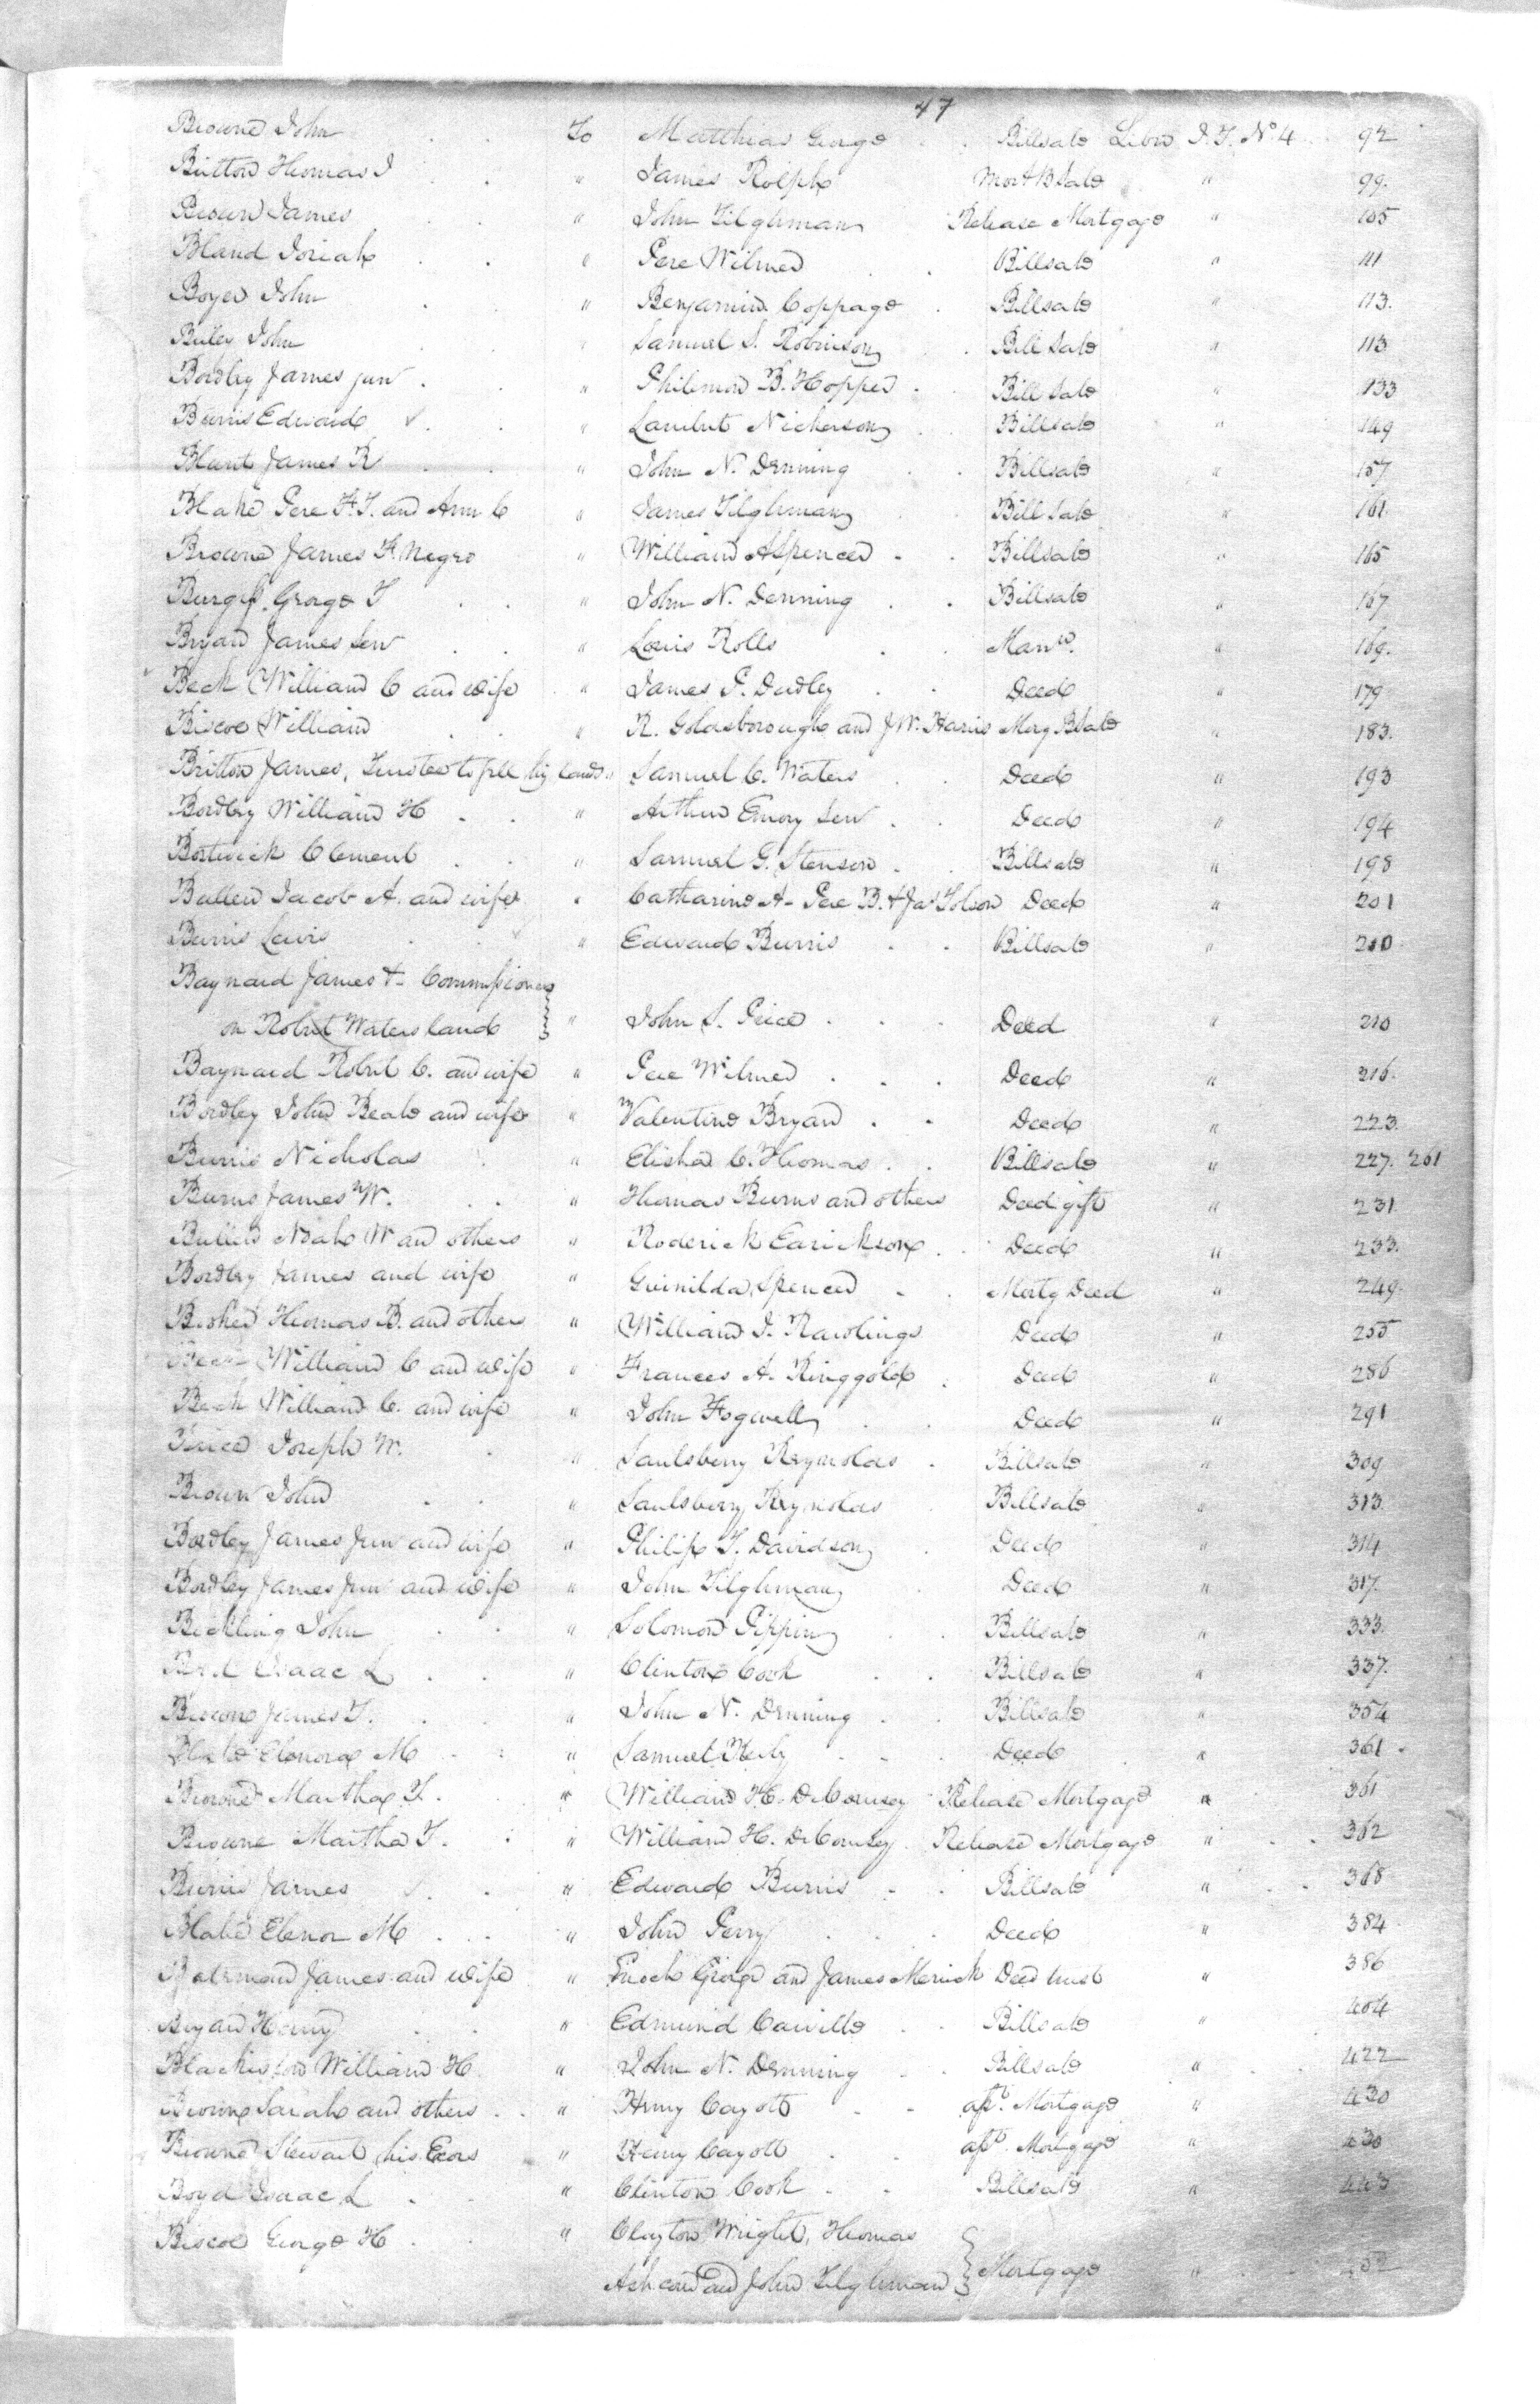 47
Browne John To Matthias George Billsale Libro J.T. No 4 92
Britton Thomas J " James Rolph Mort B Sale " 99.
Brown James " John Tilghman Release Mortgage " 105
Bland Josiah " Pere Wilmer Billsale " 111
Boyer John " Benjamin Coppage Billsale " 113.
Bailey John " Samuel S. Robinson Bill Sale " 113
Bordley James jun " Philemon B. Hopper Bill Sale " 133
Burris Edward " Lambert Nickerson Billsale " 149
Blunt James R " John N. Denning Billsale " 157
Blake Pere F. T. and Ann C " James Tilghman Bill Sale " 161.
Browne James F. Negro " William A Spencer Billsale " 165
Burgess George T " John N. Denning Billsale " 167
Bryan James Sen " Lewis Rolls Mann. " 169.
Beck William C and wife " James P. Dudley Deed " 179
Biscoe William " R. Goldsborough and J W. Harris Morg B Sale " 183.
Britton James, Trustee to sell lands " Samuel C. Waters Deed " 193
Bordley William H " Arthur Emory Sen Deed " 194
Bostwick Clement " Samuel G. Stenson Billsale " 198
Bullen Jacob A. and wife " Catharine A - Pere B. & Jas Tolson Deed " 201
Burris Lewis " Edward Burris Billsale " 210
Baynard James & Commissioners
on Robert Waters land } " John S. Price Deed " 210
Baynard Robert C. and wife " Pere Wilmer Deed " 216.
Bordley John Beale and wife " Valentine Bryan Deed " 223.
Burris Nicholas " Elisha C. Thomas Billsale " 227. 261
Burns James W. " Thomas Burns and others Deed gift " 231
Bullen Noah W and others " Roderick Earickson Deed " 233.
Bordley James and wife " Gwinilda Spencer Mortg Deed " 249.
Thomas B. and others " William J. Rawlings Deed " 255
Beck William C and wife " Frances A. Ringgold Deed " 286
Beck William C. and wife " John Fogwell Deed " 291
Price Joseph W. " Saulsberry Reynolds Billsale " 309
Brown John " Saulsberry Reynolds Billsale " 313.
Bordley James Jun and wife " Philip T. Davidson Deed " 314
Bordley James Jun and wife " John Tilghman Deed " 317.
Bickling John " Solomon Pippin Billsale " 333.
Isaac L " Clinton Cook Billsale " 337.
Browne James T. " John N. Denning Billsale " 354
Blake Elenora M " Samuel Keily Deed " 361
Browne Martha T. " William H. DeCoursey Release Mortgage " 361
Browne Martha T. " William H. DeCoursey Release Mortgage " 362
Burris James " Edward Burris Billsale " 368
Blake Elenor M " John Perry Deed " 384
Bateman James and wife " Enoch George and James Merrick Deed trust " 386
Bryan Henry " Edmund Carville Billsale " 404
Blackiston William H " John N. Denning Billsale " 422
Browne Sarah and others " Henry Cayott ass. Mortgage " 430
Browne Stewart his Exors " Henry Cayott ass. Mortgage " 430
Boyd Isaac L " Clinton Cook Billsale "
Biscoe George H " Clayton Wright, Thomas
Ashcom and John Tilghman } Mortgage "